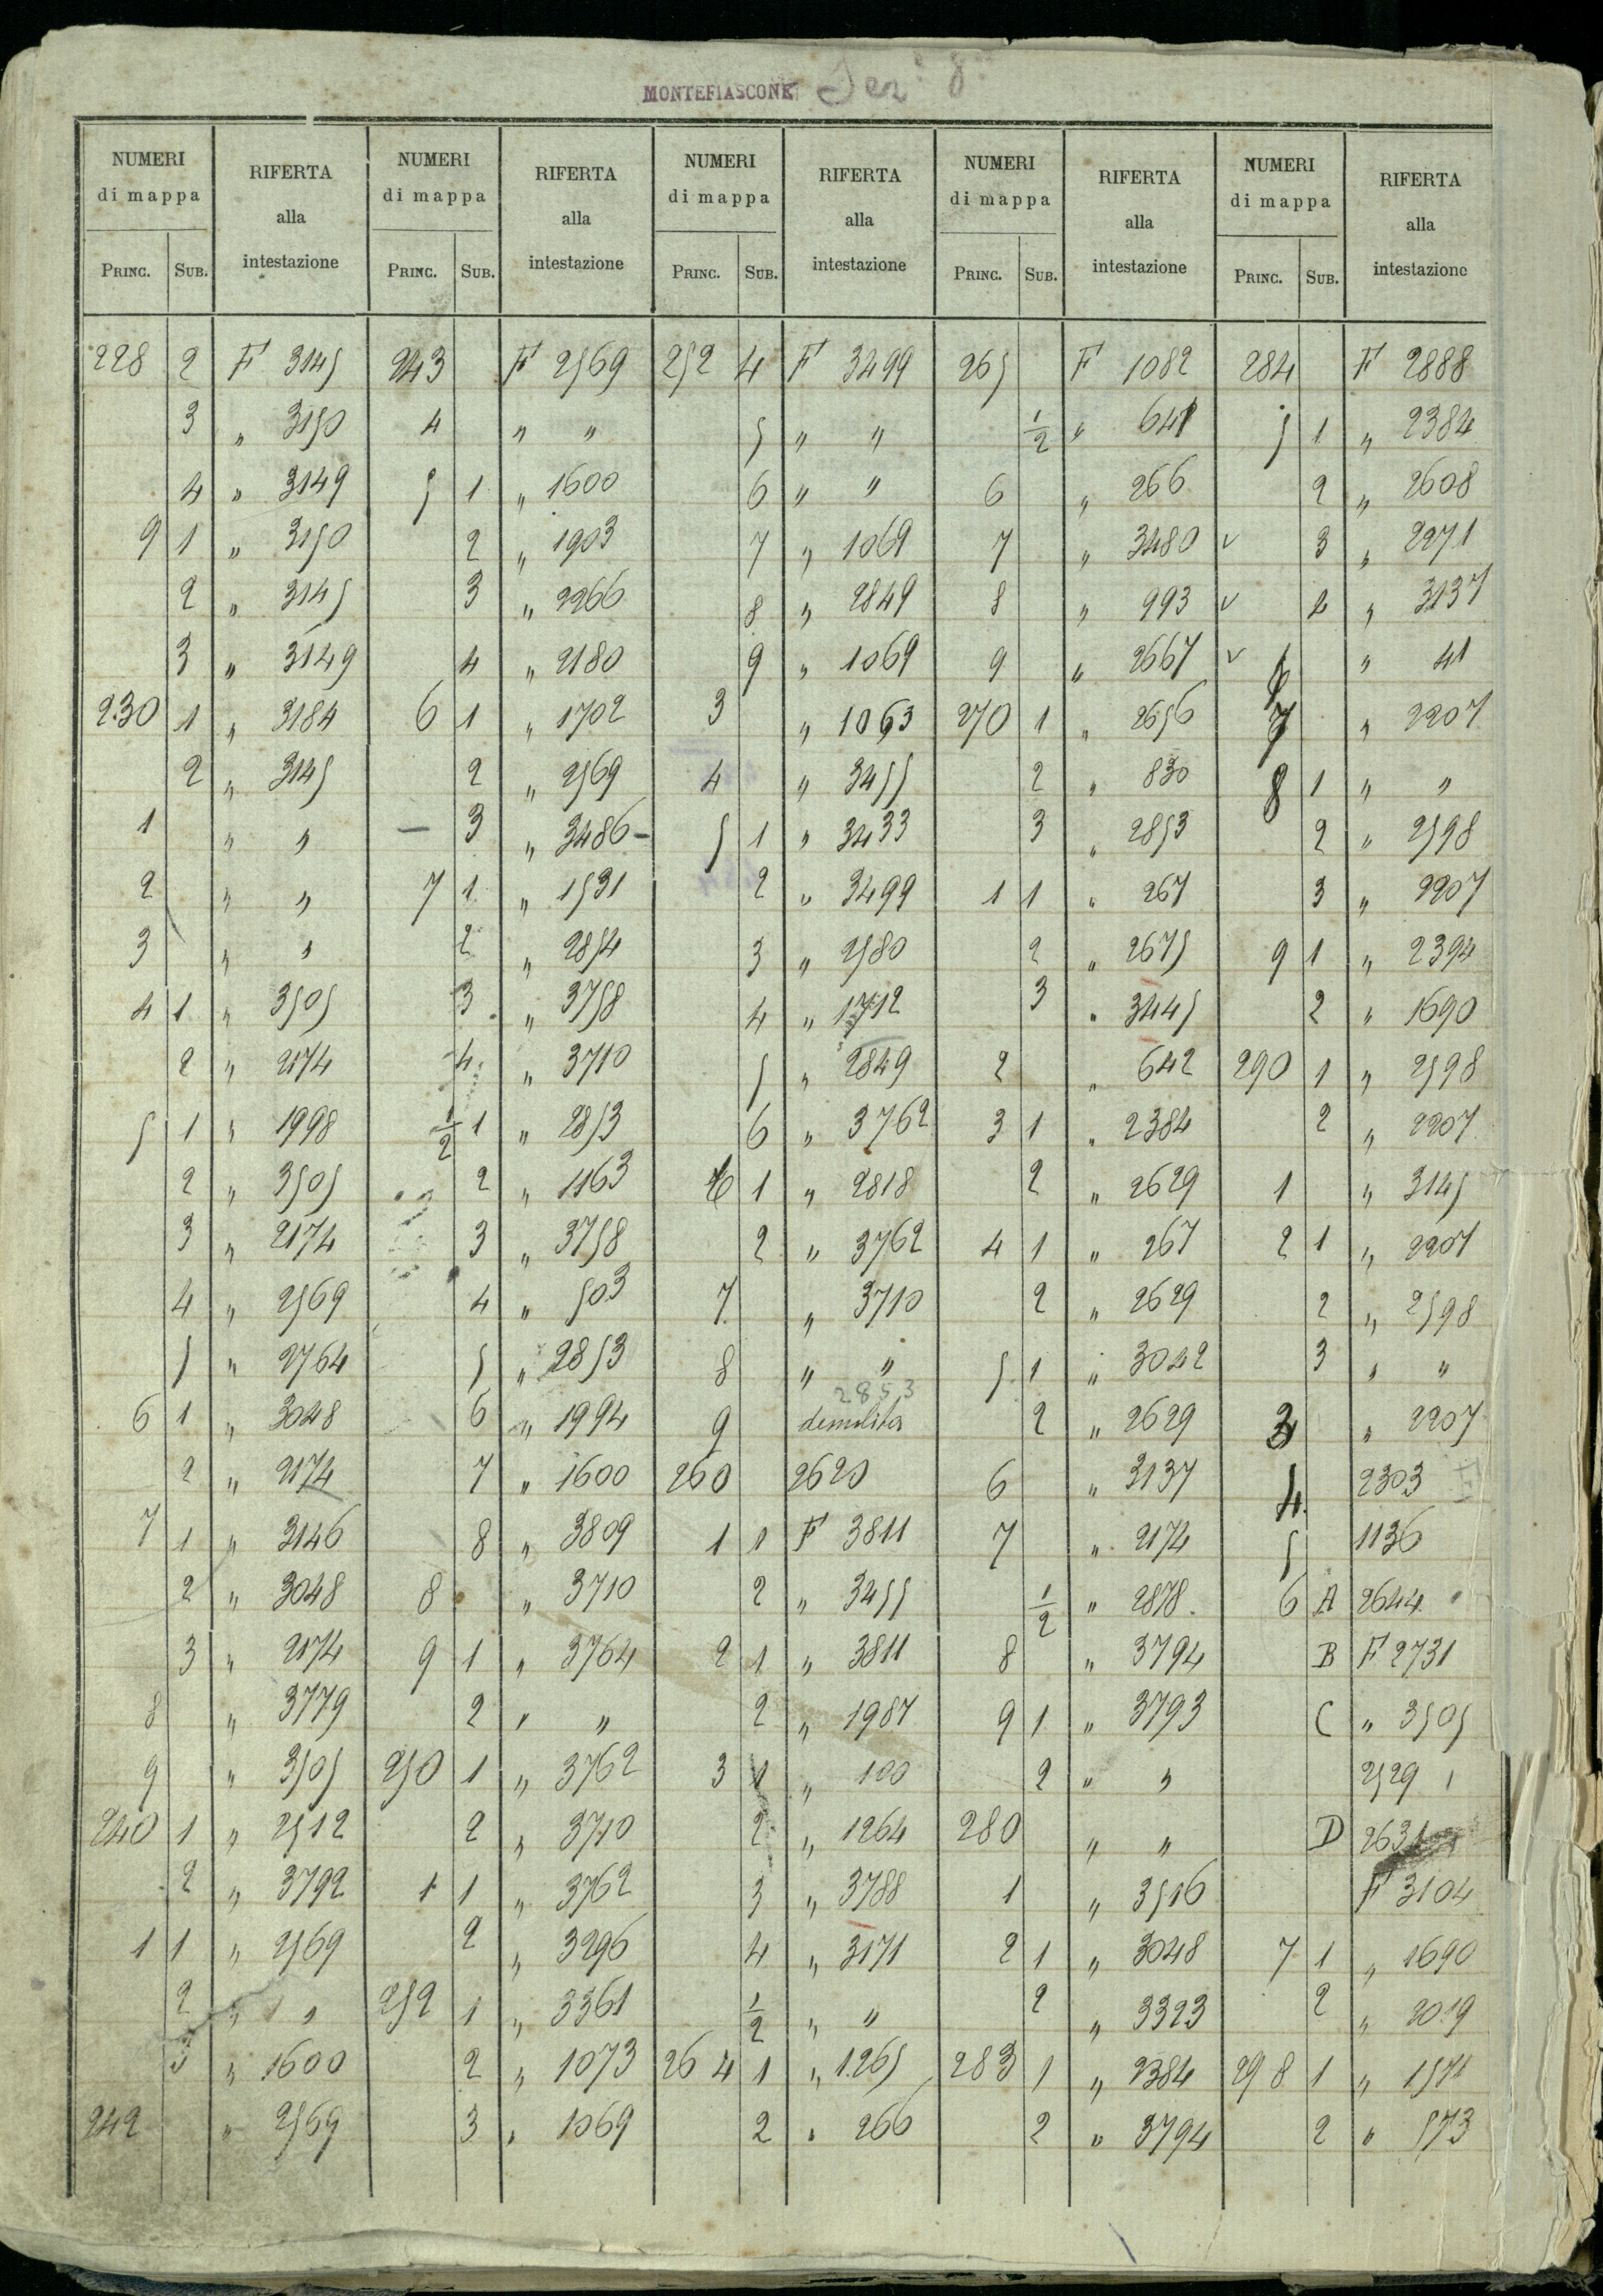 MONTEFIASCONE Sez.e 8
NUMERI di mappa RIFERTA alla intestazione NUMERI di mappa RIFERTA alla intestazione NUMERI di mappa RIFERTA alla intestazione NUMERI di mappa RIFERTA alla intestazione NUMERI di mappa RIFERTA alla intestazione
PRINC. SUB. PRINC. SUB. PRINC. SUB. PRINC. SUB. PRINC. SUB.
228 2 F 3145 243 F 2569 252 4 F 3499 265 F 1082 284 F 2888
3 " 3150 4 " " 5 " " 1/2 " 641 5 1 " 2384
4 " 3149 5 1 " 1600 6 " " 6 " 266 2 " 2608
9 1 " 3150 2 " 1903 7 " 1069 7 " 3480 v 3 " 2271
2 " 3145 3 " 2266 8 " 2849 8 " 993 v 4 " 3137
3 " 3149 4 " 2180 9 " 1069 9 " 2667 v 6 " 41
230 1 " 3184 6 1 " 1702 3 " 1063 270 1 " 2656 7 " 2207
2 " 3145 2 " 2569 4 " 3455 2 " 830 8 1 " "
1 " " — 3 " 3486 — 5 1 " 3433 3 " 2853 2 " 2598
2 " " 7 1 " 1531 2 " 3499 1 1 " 267 3 " 2207
3 " " 2 " 2854 3 " 2580 2 " 2675 9 1 " 2394
4 1 " 3505 3 " 3758 4 " 1712 3 " 3445 2 " 1690
2 " 2174 4 " 3710 5 " 2849 2 " 642 290 1 " 2598
5 1 " 1998 1/2 1 " 2853 6 " 3762 3 1 " 2384 2 " 2207
2 " 3505 2 " 1163 6 1 " 2818 2 " 2629 1 " 3145
3 " 2174 3 " 3758 2 " 3762 4 1 " 267 2 1 " 2207
4 " 2569 4 " 503 7 " 3710 2 " 2629 2 " 2598
5 " 2764 5 " 2853 8 " " 5 1 " 3042 3 " "
2853
6 1 " 3048 6 " 1994 9 demolita 2 " 2629 3 " 2207
2 " 2174 7 " 1600 260 2620 6 " 3137 4 2303
7 1 " 3146 8 " 3809 1 1 F 3811 7 " 2174 5 1136
2 " 3048 8 " 3710 2 " 3455 1/2 " 2878 6 A 2644
3 " 2174 9 1 " 3764 2 1 " 3811 8 " 3794 B F 2731
8 " 3779 2 " " 2 " 1987 9 1 " 3793 C " 3505
9 " 3505 250 1 " 3762 3 1 " 100 2 " " 2529
240 1 " 2512 2 " 3710 2 " 1264 280 " " D 2631
2 " 3792 1 1 " 3762 3 " 3788 1 " 3516 F 3104
1 1 " 2569 2 " 3296 4 " 3171 2 1 " 3048 7 1 " 1690
2 " " 252 1 " 3361 1/2 " " 2 " 3323 2 " 2019
3 " 1600 2 " 1073 264 1 " 1265 283 1 " 2384 298 1 " 1571
242 " 2569 3 " 1069 2 " 266 2 " 3794 2 " 573